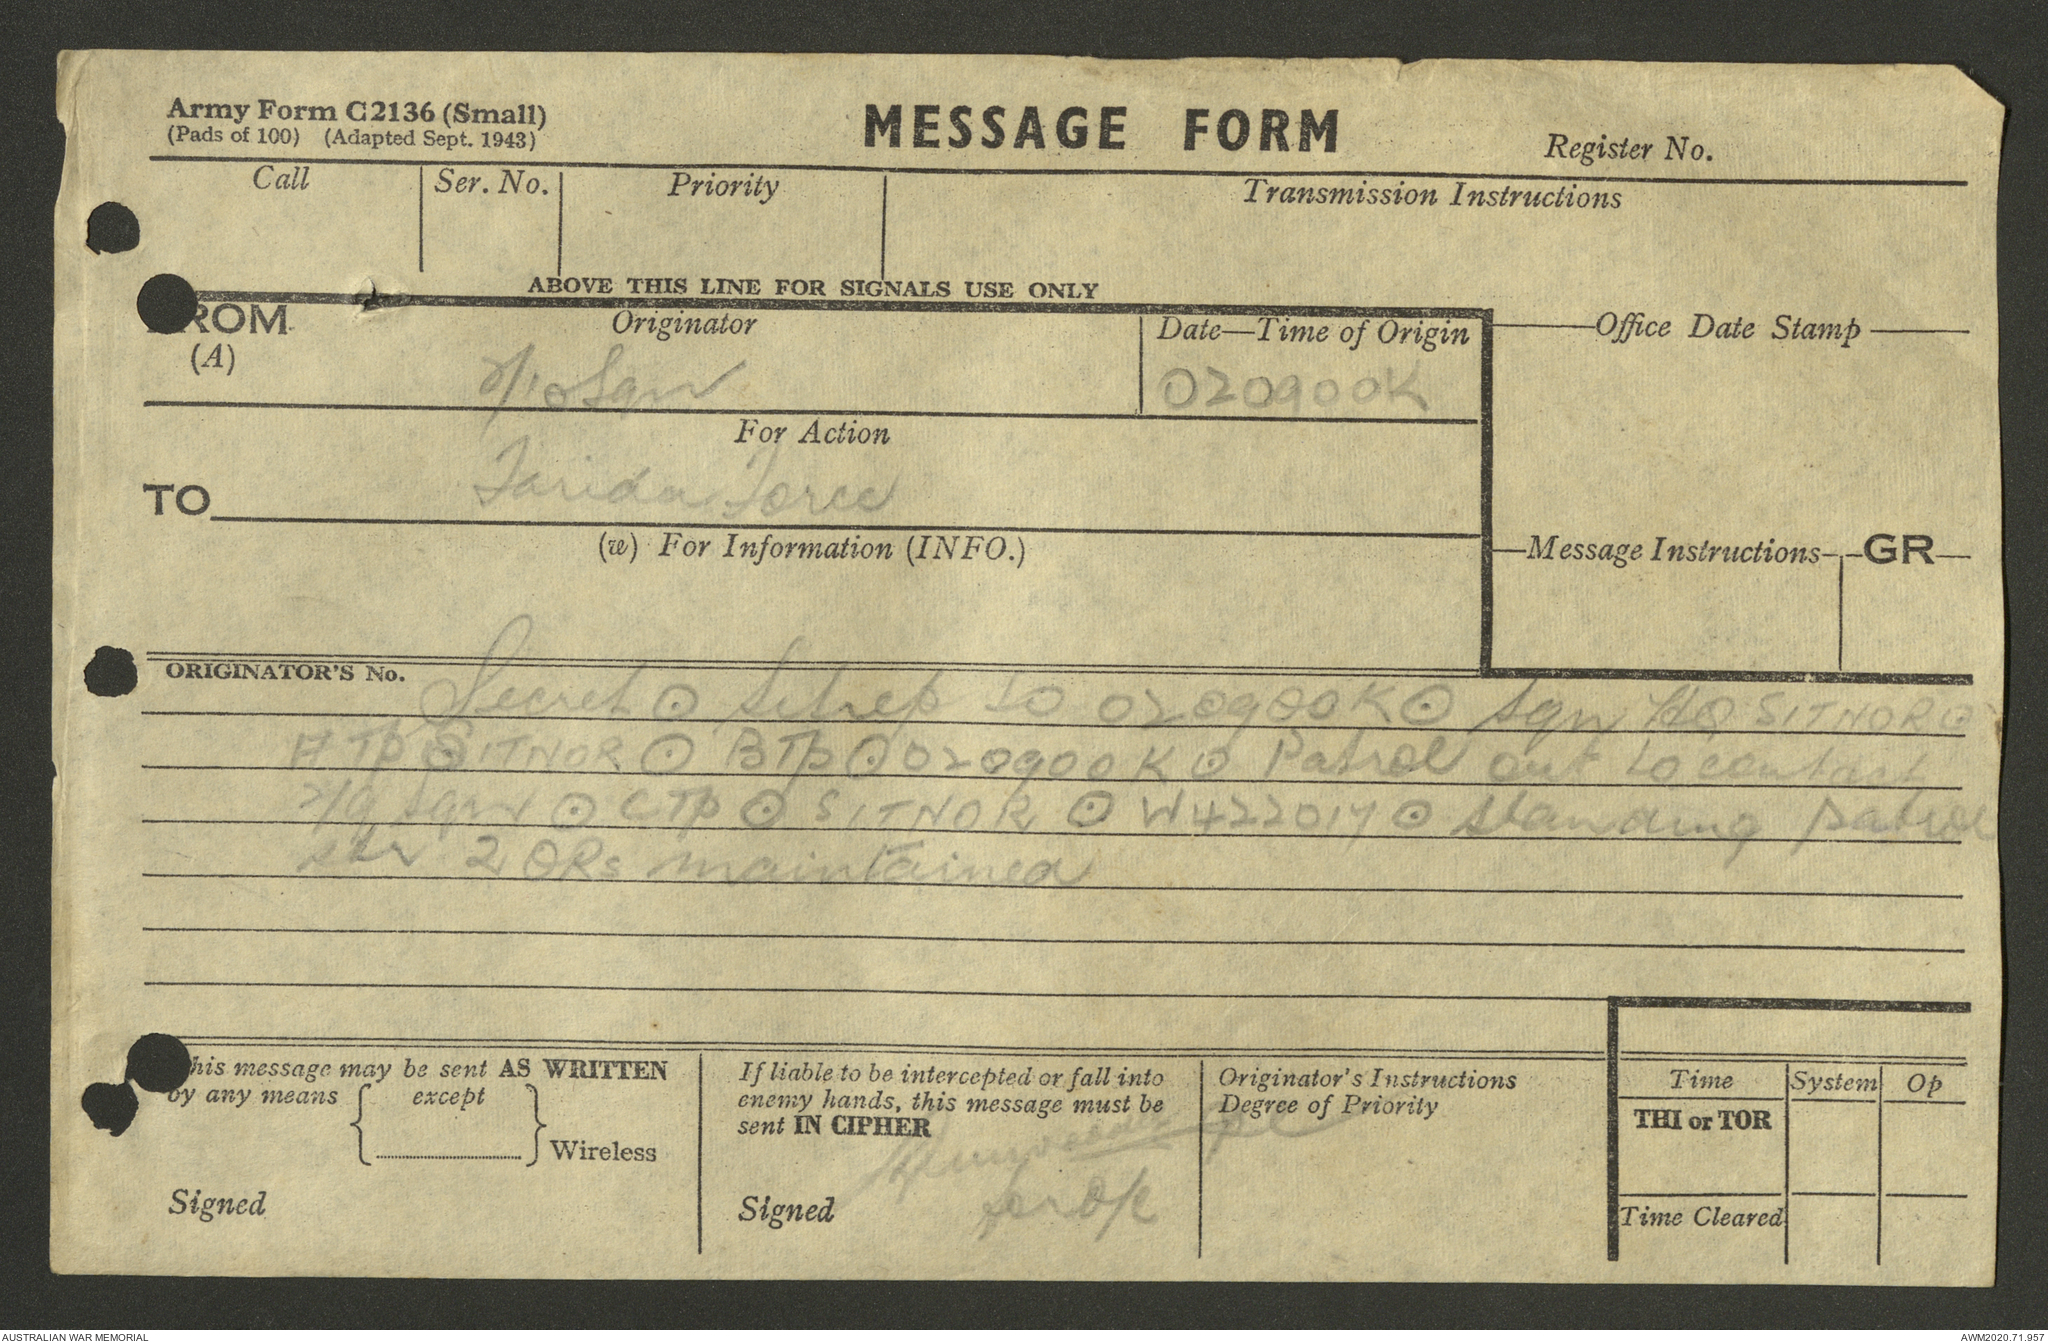 Army Form C2136 (Small)
(Pads of 100) (Adapted Sept. 1943)
MESSAGE FORM
Register No.
Call
Ser. No.
Priority
Transmission Instructions
ABOVE THIS LINE FOR SIGNALS USE ONLY
FROM
(A)
Originator
2/10 Sqn
Date—Time of Origin
020900K
Office Date Stamp
For Action
TO
Farida Force
(w) For Information (INFO.)
Message Instructions
GR
ORIGINATOR'S No.
Secret ⊙ Sitrep to 020900K ⊙ Sqn HQ SITNOR ⊙
A TP SITNOR ⊙ B TP ⊙ 020900K ⊙ Patrol out to contact
2/9 Sqn ⊙ C TP ⊙ SITNOR ⊙ W422017 ⊙ Standing patrol
2 ORs maintained
This message may be sent AS WRITTEN
by any means except
Wireless
Signed
If liable to be intercepted or fall into
enemy hands, this message must be
sent IN CIPHER
Signed
for O/C
Originator's Instructions
Degree of Priority
Time
System
Op
THI or TOR
Time Cleared
AUSTRALIAN WAR MEMORIAL
AWM2020.71.957